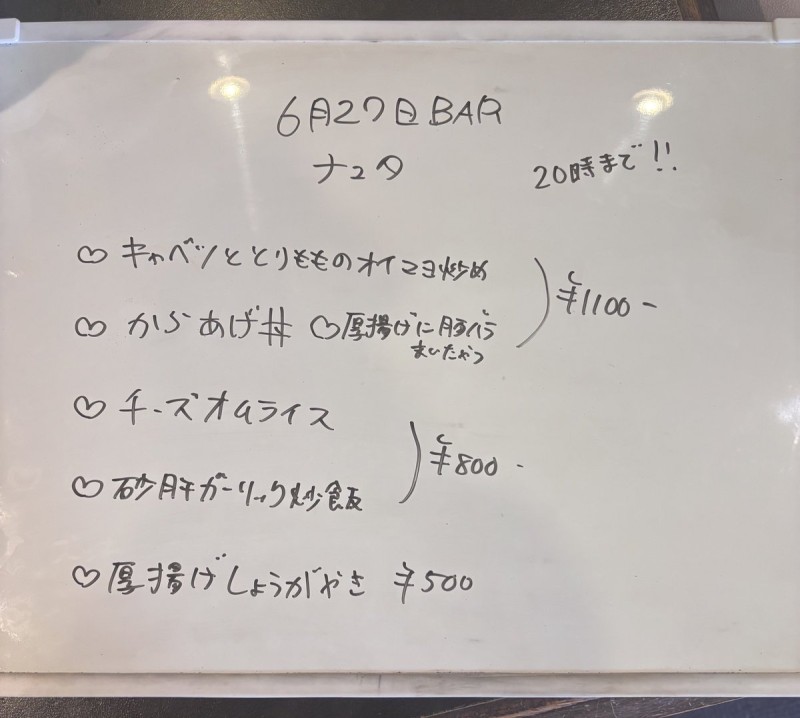 6月27日 BAR
ナュタ
20時まで!!
♡ キャベツととりもものオイマヨ炒め
♡ からあげ丼 ♡厚揚げに豚バラ
まいたやつ
¥1100-
♡ チーズオムライス
♡ 砂肝ガーリック炒飯
¥800-
♡ 厚揚げしょうがやき ¥500